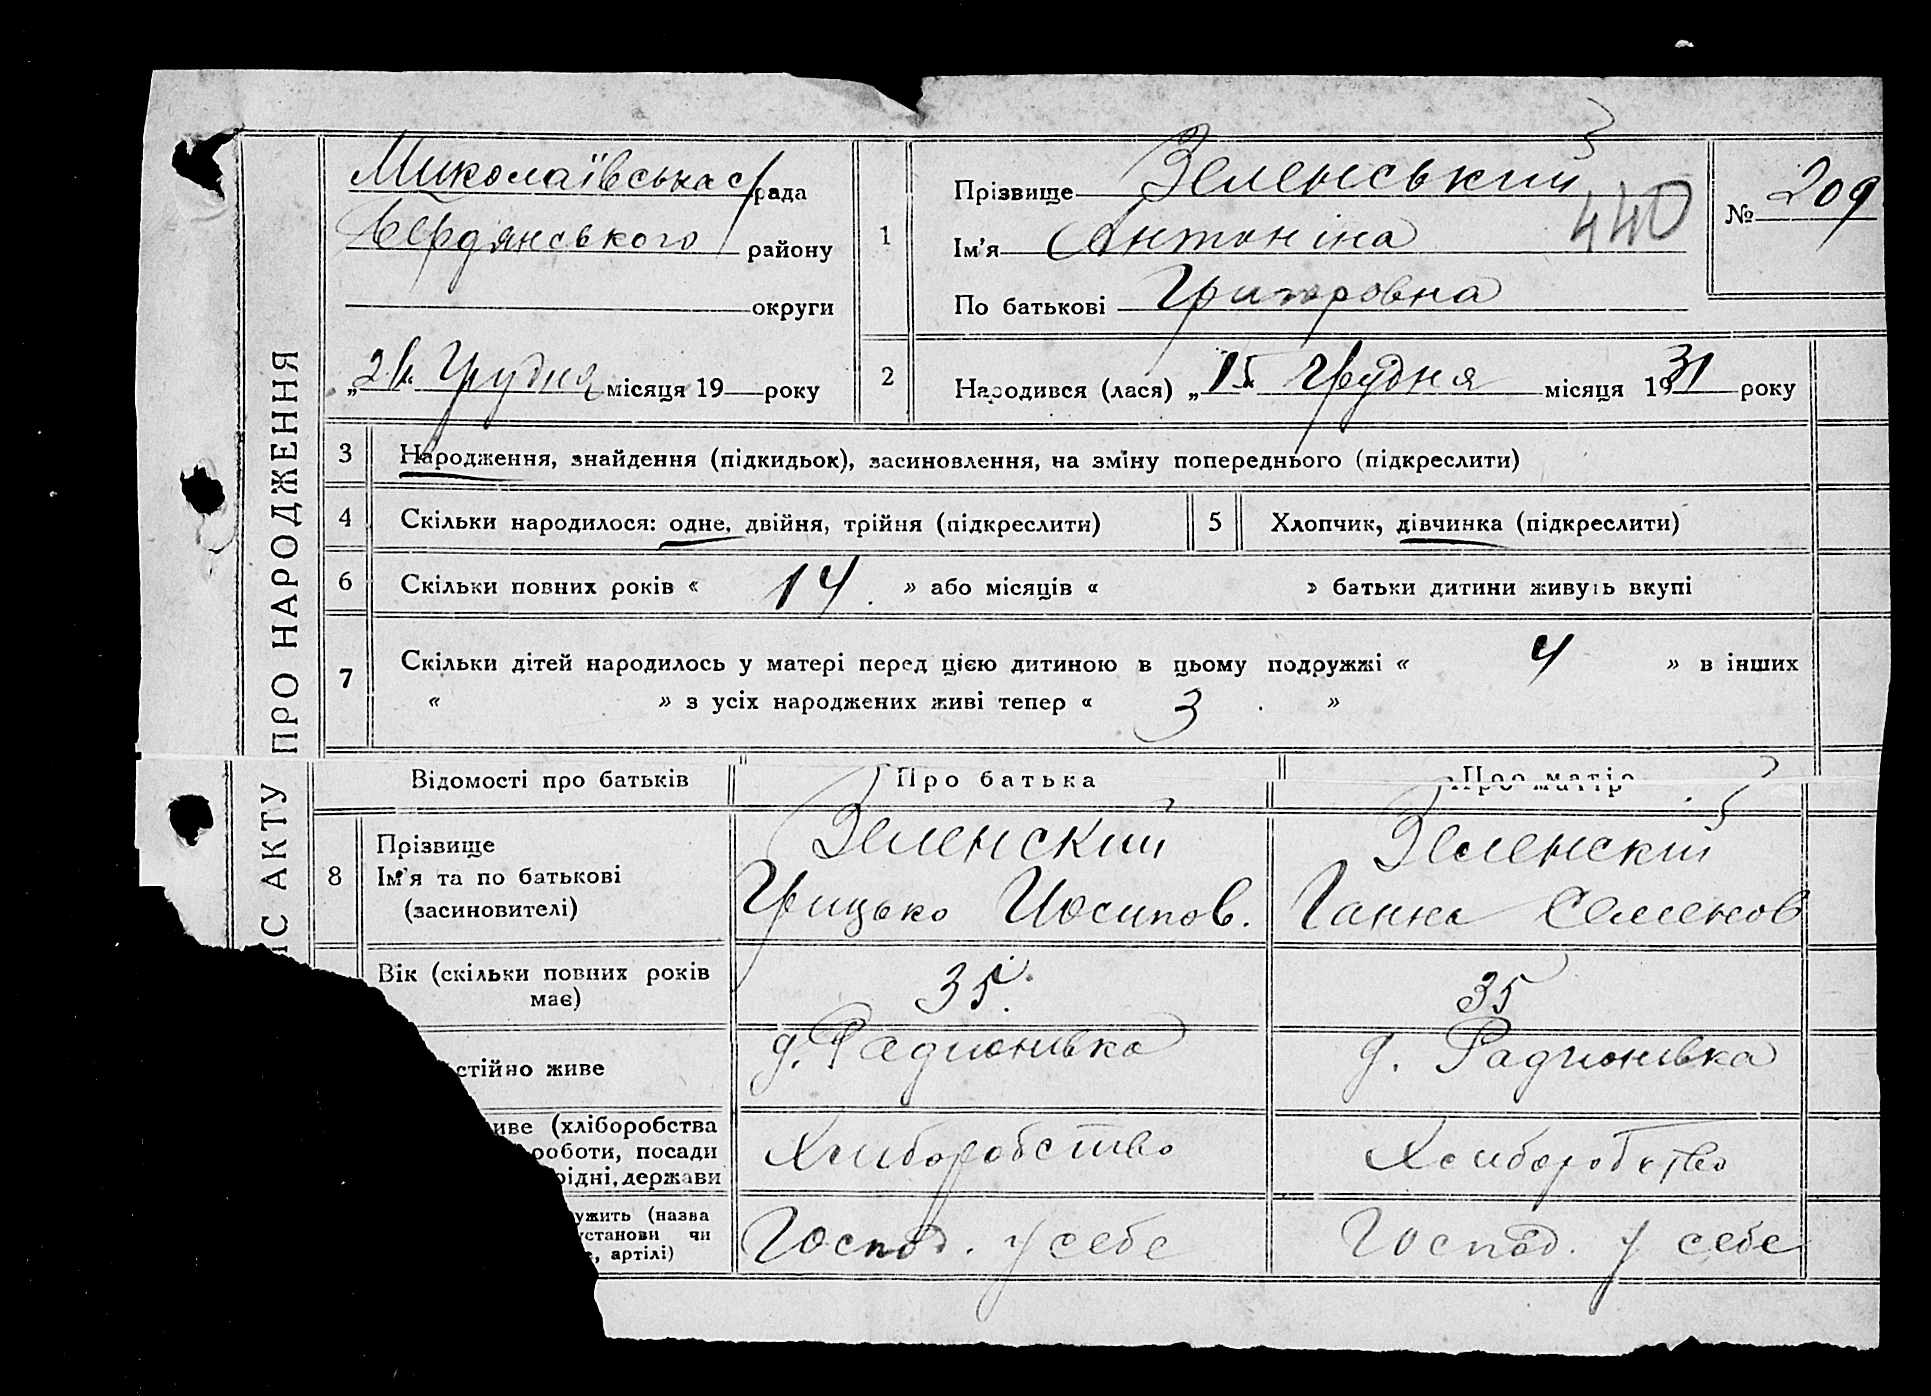 ПИС АКТУ ПРО НАРОДЖЕННЯ
Миколаївська с/рада
Бердянського району
округи
„21" Грудня місяця 19 року
1
Прізвище Зеленський
Ім'я Антоніна
440
По батькові Григоровна
№ 209
2
Народився (лася) „15" Грудня місяця 1931 року
3 Народження, знайдення (підкидьок), засиновлення, на зміну попереднього (підкреслити)
4 Скільки народилося: одне, двійня, трійня (підкреслити)
5 Хлопчик, дівчинка (підкреслити)
6 Скільки повних років « 14 » або місяців « » батьки дитини живуть вкупі
7 Скільки дітей народилось у матері перед цією дитиною в цьому подружжі « 4 » в інших
« » з усіх народжених живі тепер « 3 »
Відомості про батьків Про батька Про матір
8 Прізвище
Ім'я та по батькові
(засиновителі)
Зеленский
Грицько Иосипов.
Зеленский
Ганна Семенов
Вік (скільки повних років
має)
35
35
стійно живе
д. Радионивка
д. Радионивка
иве (хліборобства
роботи, посади
рідні, держави
Хлиборобство
Хлиборобство
ужить (назва
установи чи
е, артілі)
Господ. у себе
Господ. у себе